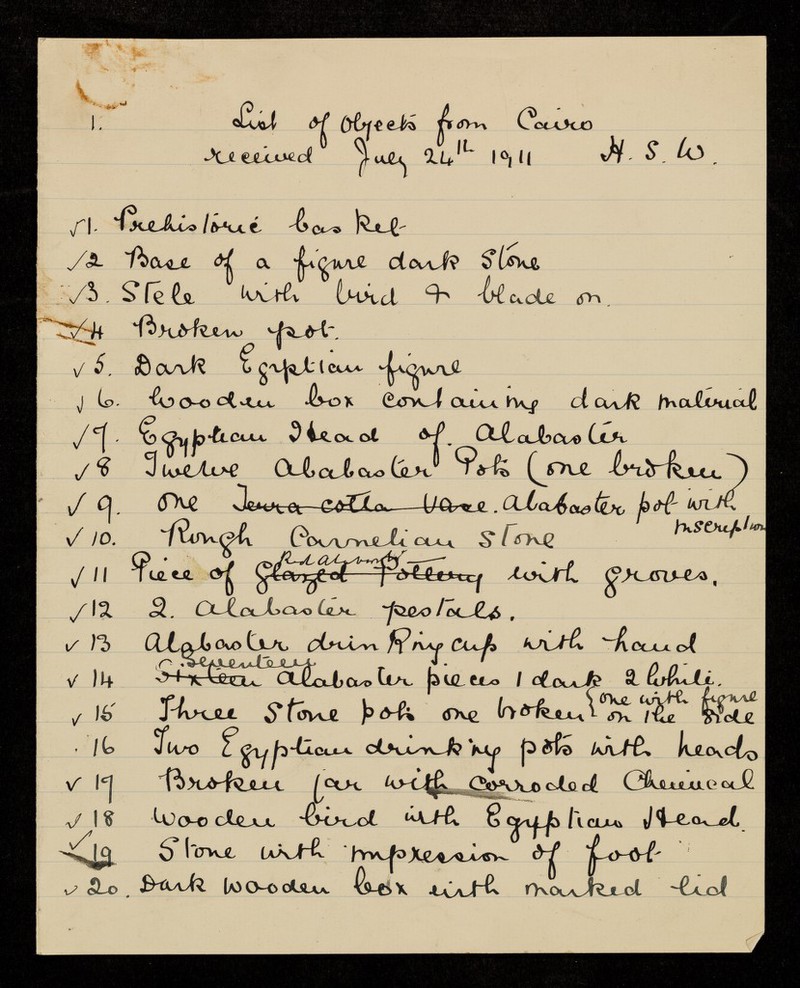 1. List of Objects from Cairo
received July 24th 1911 H. S. W.
√1. Prehistoric basket
√2 Base of a figure dark Stone
√3. Stele with bird & blade on.
√4 Broken pot.
√5. Dark Egyptian figure
√6. Wooden box containing dark material
√7. Egyptian Head of. Alabaster
√8 Twelve Alabaster Pots (one broken)
√9. One Terra cotta Vase. Alabaster pot with
inscription
√10. Rough Carnelian Stone
√11 Piece of Glazed Pottery with groves.
√12 2. Alabaster pestals.
√13 Alabaster drinking cup with hand
seventeen
√14 Sixteen Alabaster pieces 1 dark 2 white.
√15 Three Stone pots one broken {one with figure
on the side
.16 Two Egyptian drinking pots with heads
√17 Broken jar with corroded Chemical
√18 Wooden bird with Egyptian Head.
√19 Stone with impression of foot
√20. Dark wooden box with marked lid